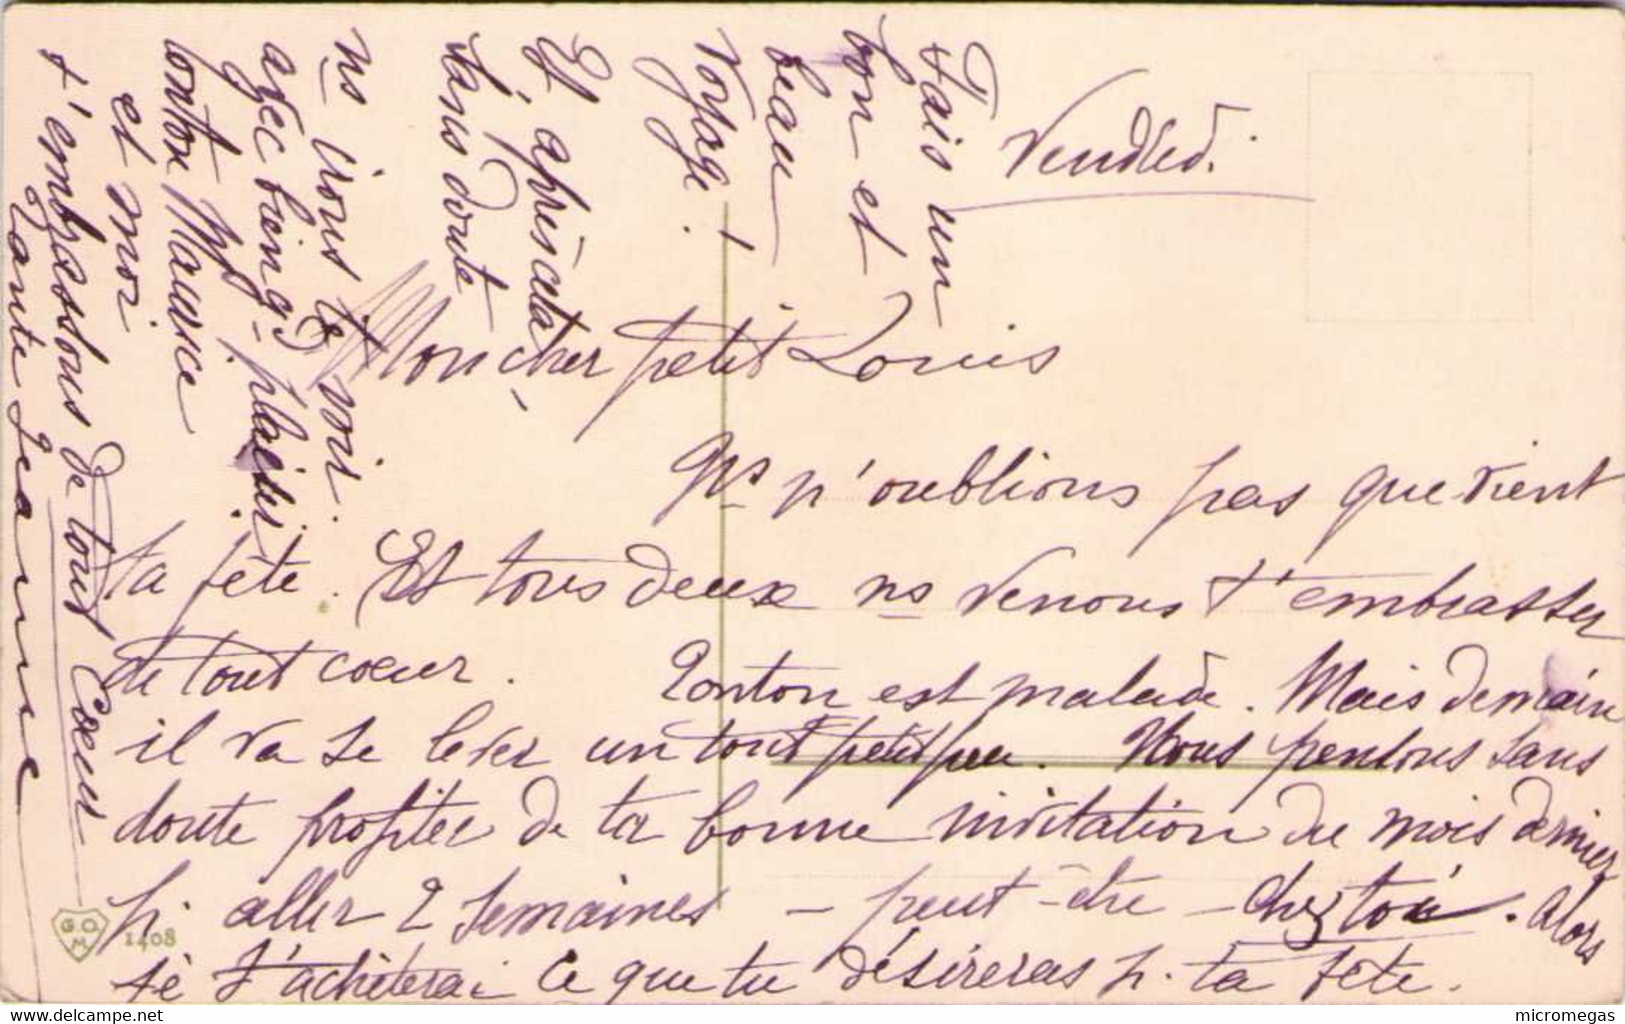 Vendredi
Mon cher petit Louis
Ns n'oublions pas que vient
ta fête. Et tous deux ns venons t'embrasser
de tout coeur. Tonton est malade. Mais demain
il va se lever un tout petit peu. Nous pensons sans
doute profiter de ta bonne invitation du mois dernier
pr. aller 2 semaines - peut-être - chez toi. Alors
je t'achèterai ce que tu désireras pr. ta fête.
Fais un
bon et
beau
voyage !
Et après cela,
sans doute
ns irons te voir
avec bien gd plaisir.
tonton Maurice
et moi
t'embrassons de tout coeur
Tante Jeanne
G.O.M.
1408
delcampe.net
micromegas